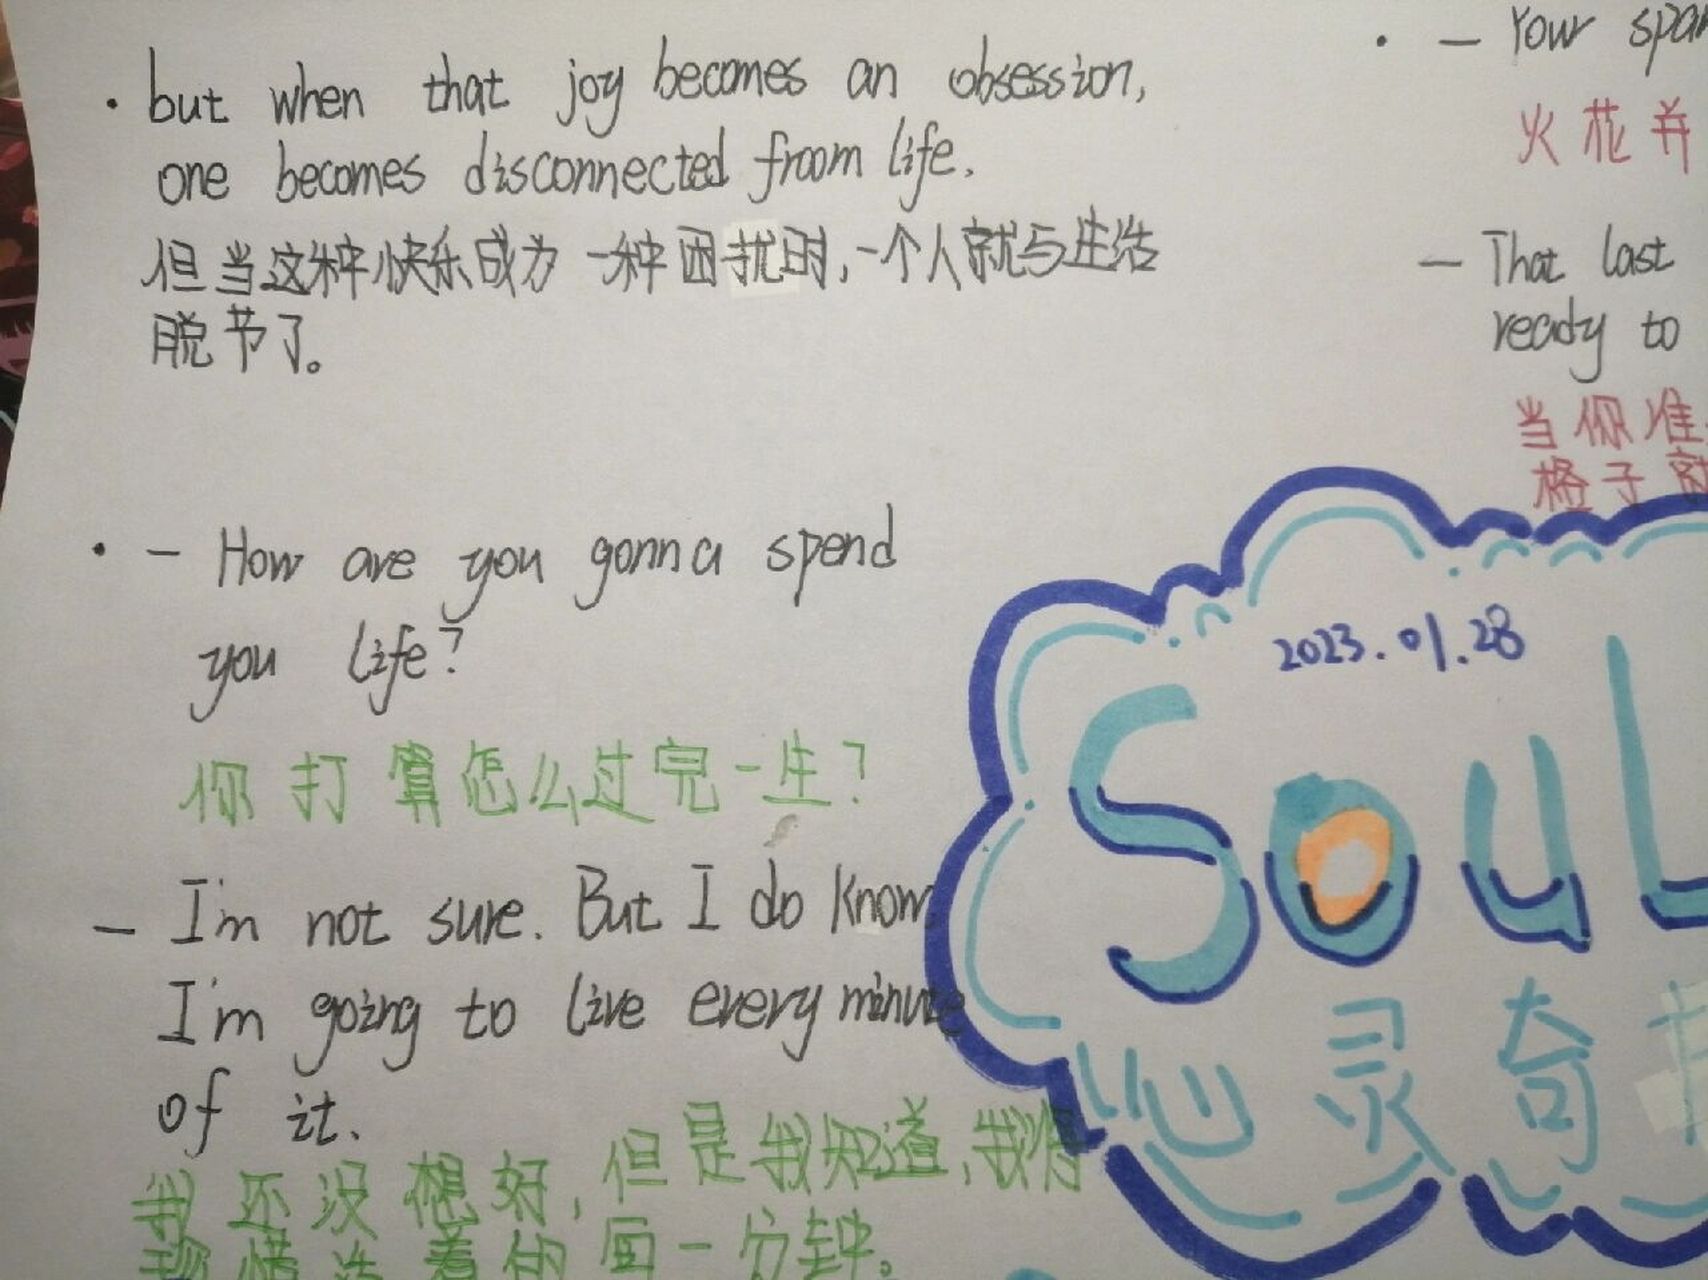 but when that joy becomes an obsession,
one becomes disconnected froom life.
但当这种快乐成为一种困扰时,一个人就与生活
脱节了。
- How are you gonna spend
you life?
你打算怎么过完一生?
- I'm not sure. But I do know
I'm going to live every minute
of it.
我还没想好,但是我知道,我将
珍惜活着的每一分钟。
- Your
火花并
- That last
ready to
当你准
格子就
2023.01.28
SOUL
心灵奇